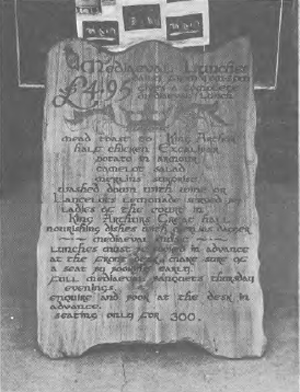 Mediaeval Lunches
£4.95 gives a complete
mediaeval lunch
mead toast to King Arthur
half chicken Excalibur
potato in armour
Camelot salad
Merlins surprise
washed down with wine or
Lancelots lemonade served by
ladies of the court in
King Arthurs Great hall
nourishing dishes with dagger
mediaeval music
lunches must be booked in advance
at the front desk make sure of
a seat by booking early.
full mediaeval banquets thursday
evenings.
enquire and book at the desk in
advance.
seating only for 300.